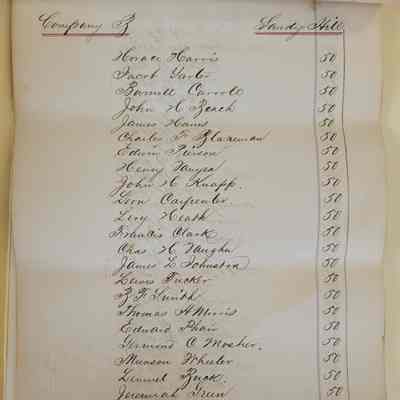 Company B Sandy Hill
Horace Harris 50
Jacob 50
Barnell Carroll 50
John H Beach 50
James Harris 50
Charles F Blakeman 50
Edwin Pierson 50
Henry 50
John H Knapp. 50
Leon Carpenter 50
Levy Heath 50
Francis Clark 50
Chas H Vaughn 50
James L Johnston 50
Lewis Tucker 50
B F Smith 50
Thomas H Morris 50
Edward Phair 50
C Mosher. 50
Munson Wheeler 50
Lemuel Buck. 50
Jeremiah Green 50